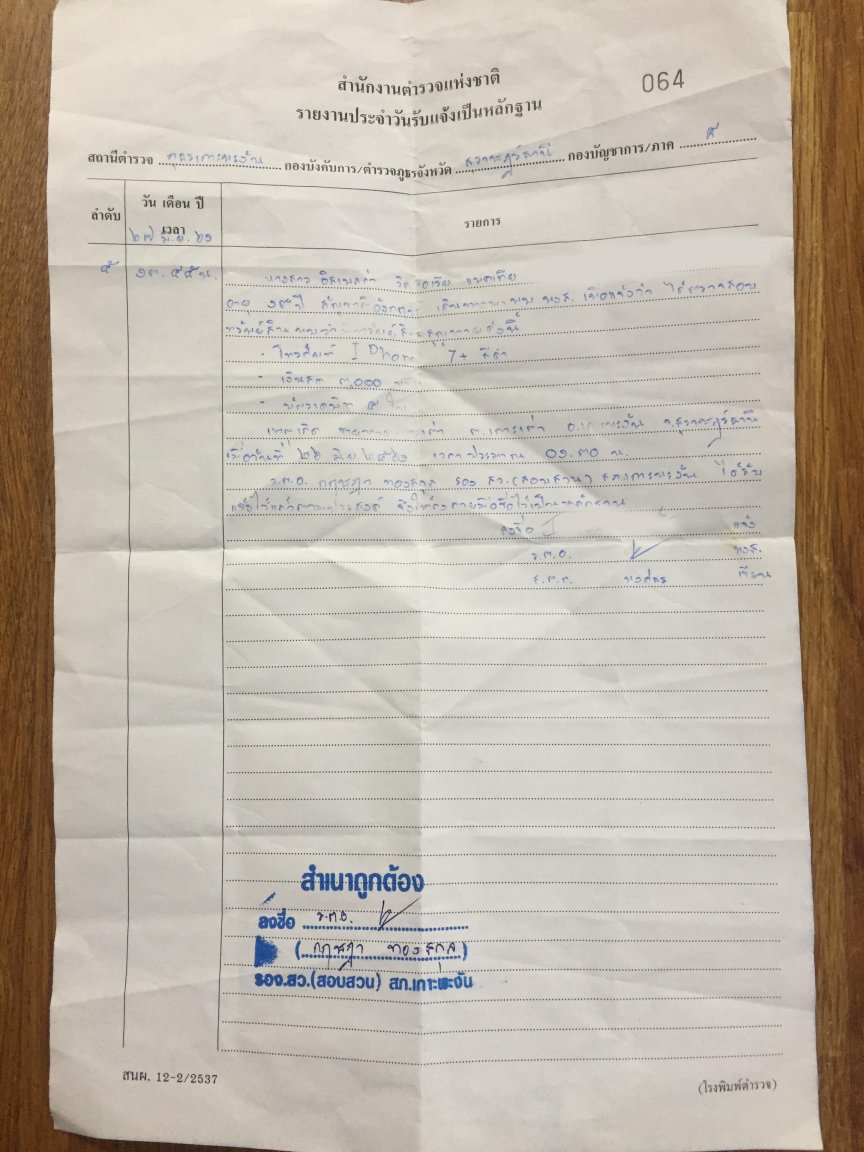 064
สำนักงานตำรวจแห่งชาติ
รายงานประจำวันรับแจ้งเป็นหลักฐาน
สถานีตำรวจ ภูธรเกาะพะงัน กองบังคับการ/ตำรวจภูธรจังหวัด สุราษฎร์ธานี กองบัญชาการ/ภาค ๘
ลำดับ วัน เดือน ปี เวลา รายการ
๒๗ มิ.ย. ๖๑
๕ ๑๓.๕๕ น. นางสาว
อายุ สัญชาติอังกฤษ เดินทางมาพบ พงส. เพื่อแจ้งว่า ได้ตรวจสอบ
ทรัพย์สิน พบว่า มีทรัพย์สินสูญหายดังนี้
- โทรศัพท์ I Phone 7+ สีดำ
- เงินสด ๓,๐๐๐
- บัตรเครดิต ๕ ใบ
เหตุเกิด ต.เกาะเต่า อ.เกาะพะงัน จ.สุราษฎร์ธานี
เมื่อวันที่ ๒๖ มิ.ย. ๒๕๖๑ เวลาประมาณ ๐๑.๓๐ น.
ร.ต.อ. กฤษฎา ทองสกุล รอง สว.(สอบสวน) สภ.เกาะพะงัน ได้รับ
แจ้งไว้แล้ว จึงให้ลงลายมือชื่อไว้เป็นหลักฐาน
ลงชื่อ แจ้ง
ร.ต.อ. พงส.
เขียน
สำเนาถูกต้อง
ลงชื่อ ร.ต.อ.
(กฤษฎา ทองสกุล)
รอง.สว.(สอบสวน) สภ.เกาะพะงัน
สนผ. 12-2/2537
(โรงพิมพ์ตำรวจ)